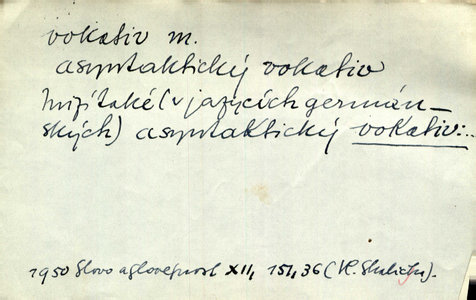 vokativ m.
asyntaktický vokativ
mizí také (v jazycích germán-
ských) asyntaktický vokativ:..
1950 Slovo a slovesnost XII, 151, 36 (Vl. Skalička).